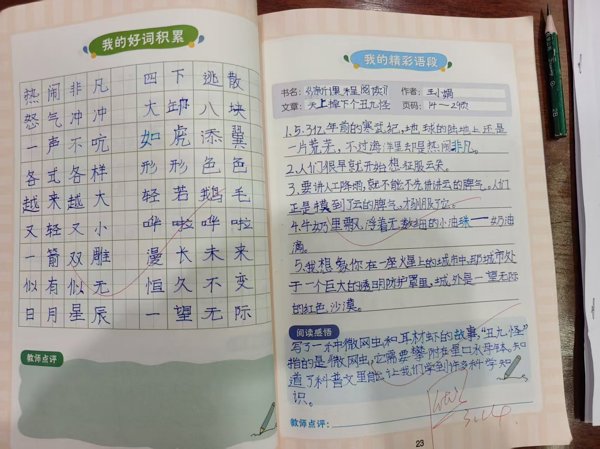 我的好词积累
热闹非凡 四下逃散
怒气冲冲 大卸八块
一声不吭 如虎添翼
各式各样 形形色色
越来越大 轻若鹅毛
又轻又小 哗啦哗啦
一箭双雕 漫长未来
似有似无 恒久不变
日月星辰 一望无际
教师点评
我的精彩语段
书名:《新课程阅读》 作者:王小娟
文章:天上掉下个丑九怪 页码:14—29页
1.5.3亿年前的寒武纪,地球的陆地上还是
一片荒芜,不过海洋里却是热闹非凡。
2.人们很早就开始想征服云朵。
3.要讲人工降雨,就不能不先讲讲云的脾气。人们
正是摸到了云的脾气,才
4.牛奶里飘浮着无数细的小油珠——奶油
滴。
5.我想象你在一座火星上的城市中,那城市处
于一个巨大的透明防护罩里,城外是一望无际
的红色沙漠。
阅读感悟
写了一种微网虫和耳材虾的故事,“丑九怪”
指的是微网虫,它需要攀附在星口水母体。知
道了科普文里能让我们学到许多科学知
识。
教师点评:
23